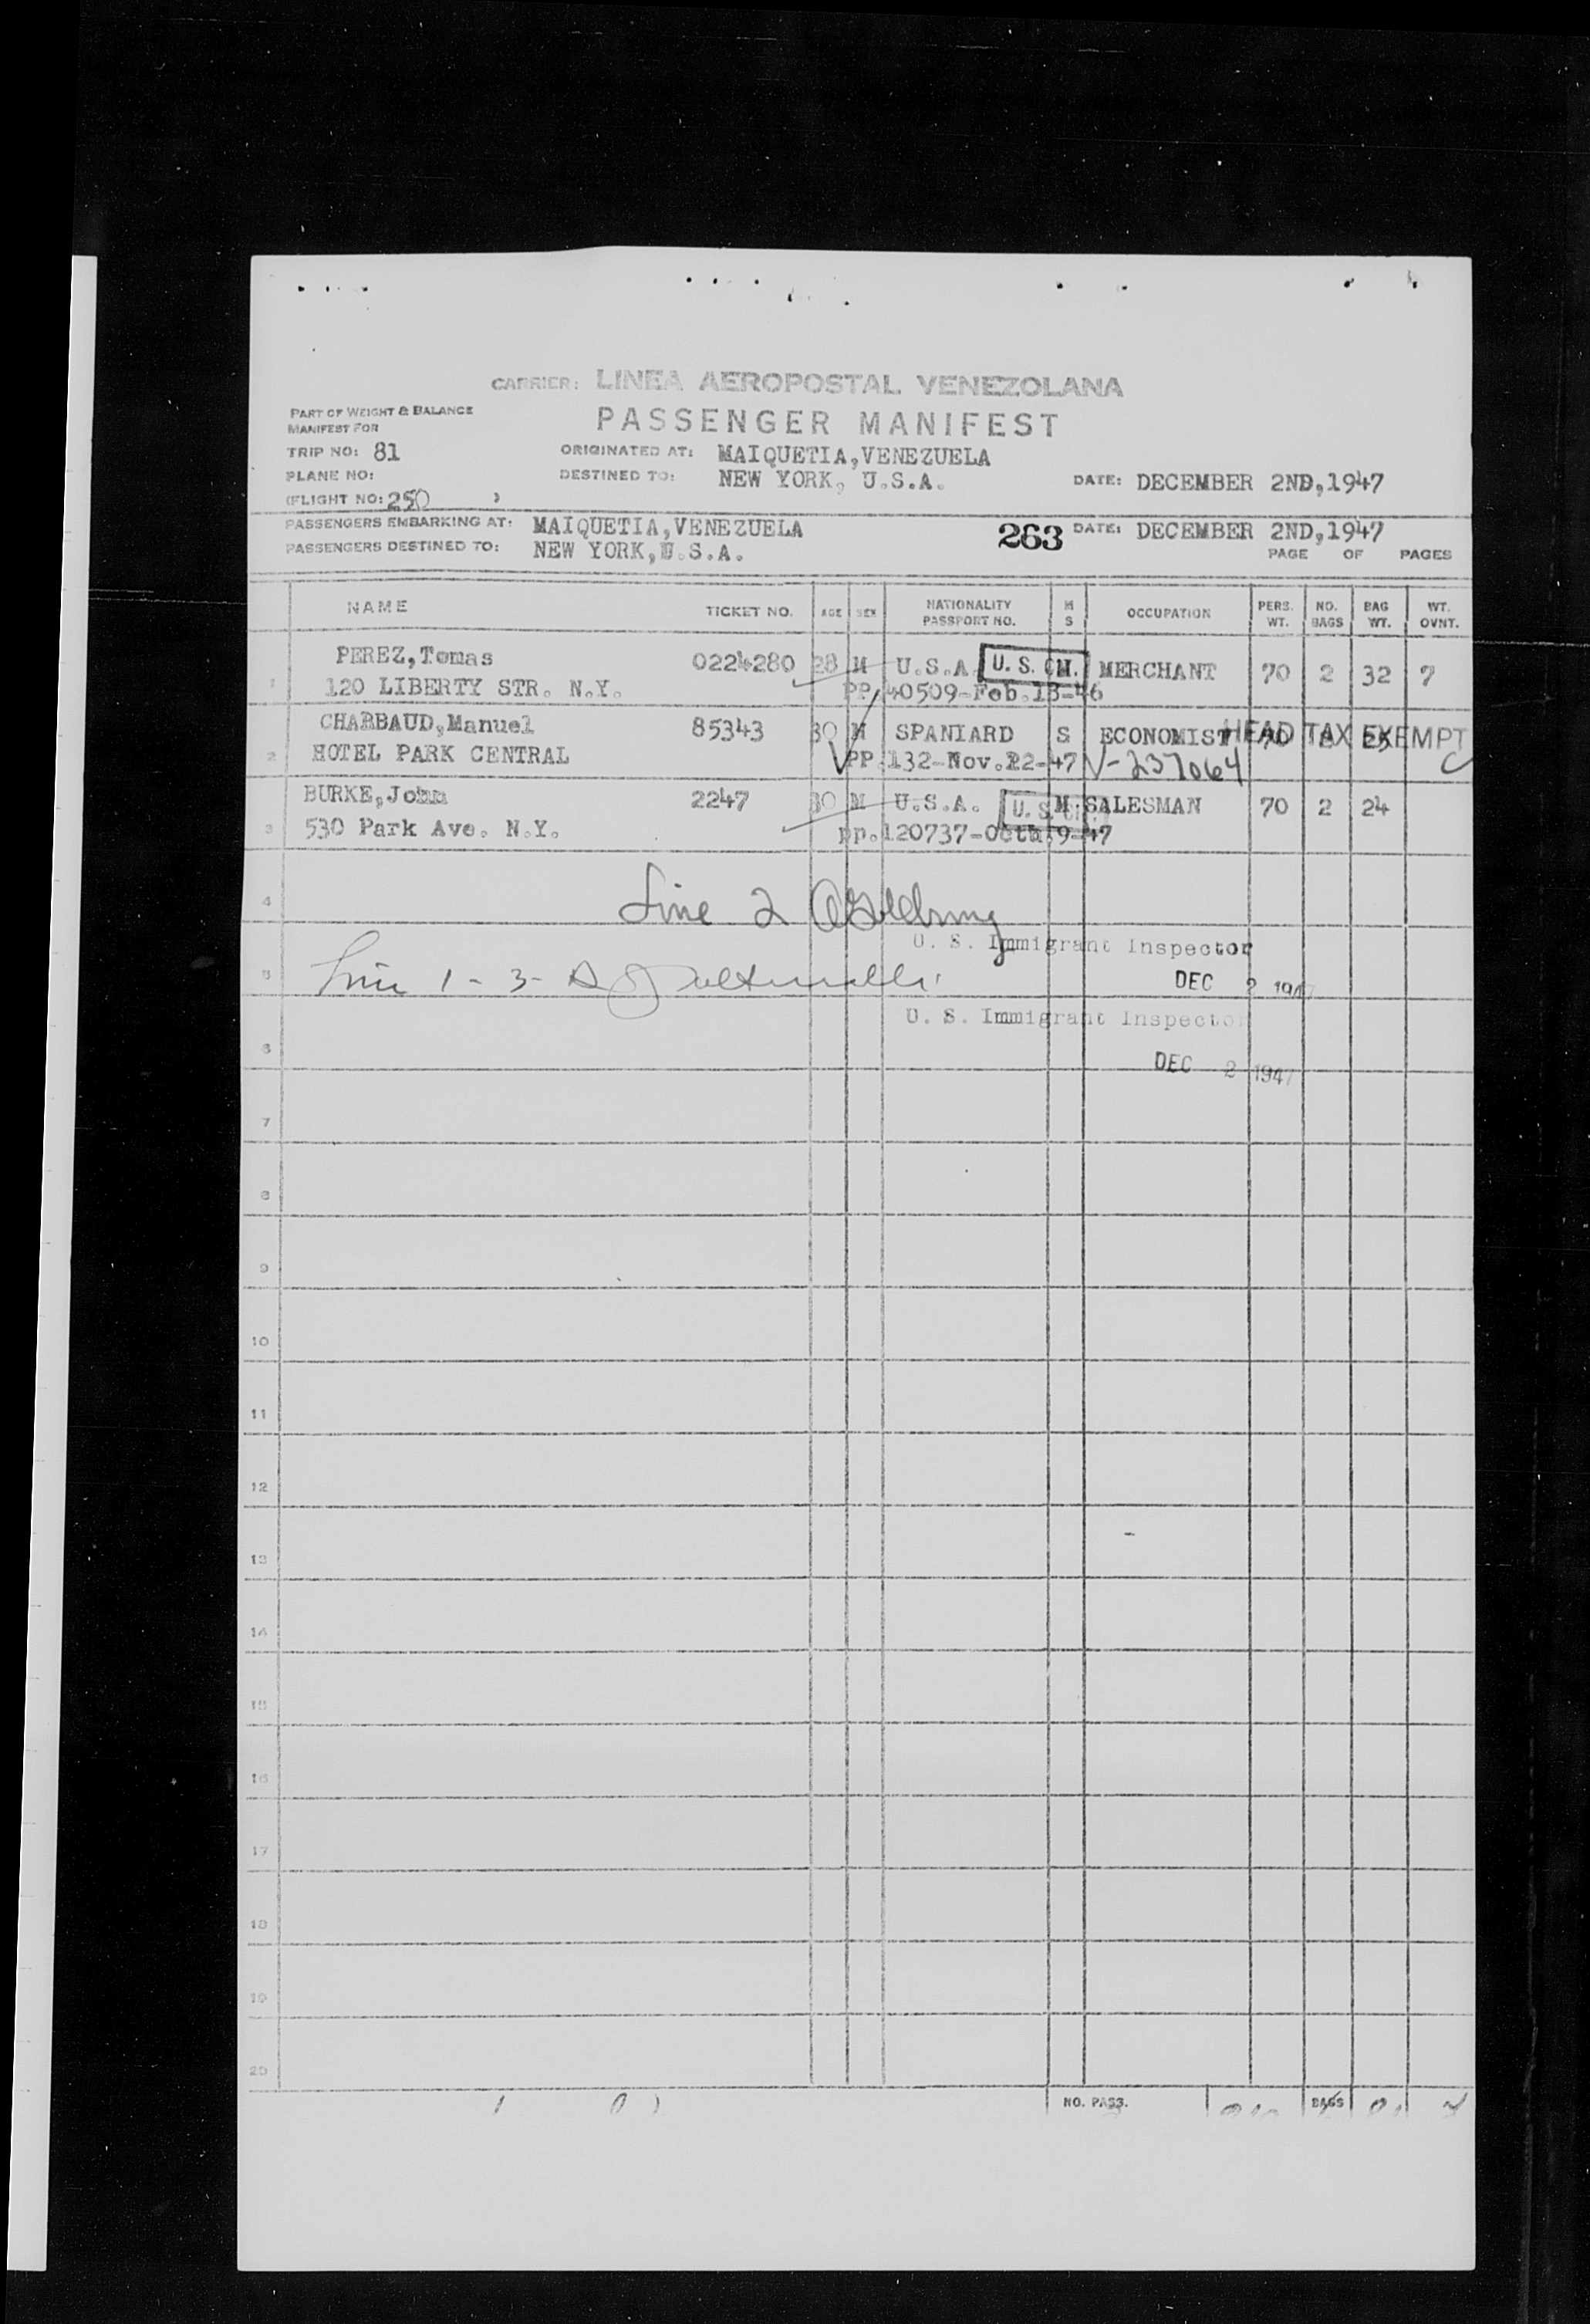 CARRIER: LINEA AEROPOSTAL VENEZOLANA
PART OF WEIGHT & BALANCE
MANIFEST FOR
PASSENGER MANIFEST
TRIP NO: 81
ORIGINATED AT: MAIQUETIA,VENEZUELA
PLANE NO:
DESTINED TO: NEW YORK, U.S.A.
DATE: DECEMBER 2ND,1947
(FLIGHT NO: 250 )
PASSENGERS EMBARKING AT: MAIQUETIA,VENEZUELA
263 DATE: DECEMBER 2ND,1947
PASSENGERS DESTINED TO: NEW YORK,U.S.A.
PAGE OF PAGES
NAME TICKET NO. AGE SEX NATIONALITY PASSPORT NO. M S OCCUPATION PERS. WT. NO. BAGS BAG WT. WT. OVNT.
1 PEREZ,Tomas 0224280 28 M U.S.A. U. S. CIT. M. MERCHANT 70 2 32 7
120 LIBERTY STR. N.Y. PP. 40509-Feb.13-46
2 CHARBAUD,Manuel 85343 30 M SPANIARD S ECONOMIST 70 HEAD TAX EXEMPT
HOTEL PARK CENTRAL PP.132-Nov.22-47 V-237064
3 BURKE,John 2247 30 M U.S.A. U. S. CIT. M SALESMAN 70 2 24
530 Park Ave. N.Y. pp.120737-Octb.9-47
4 Line 2
U. S. Immigrant Inspector
5 Line 1-3-
DEC 2 1947
U. S. Immigrant Inspector
6
DEC 2 1947
7
8
9
10
11
12
13
14
15
16
17
18
19
20
NO. PASS. BAGS